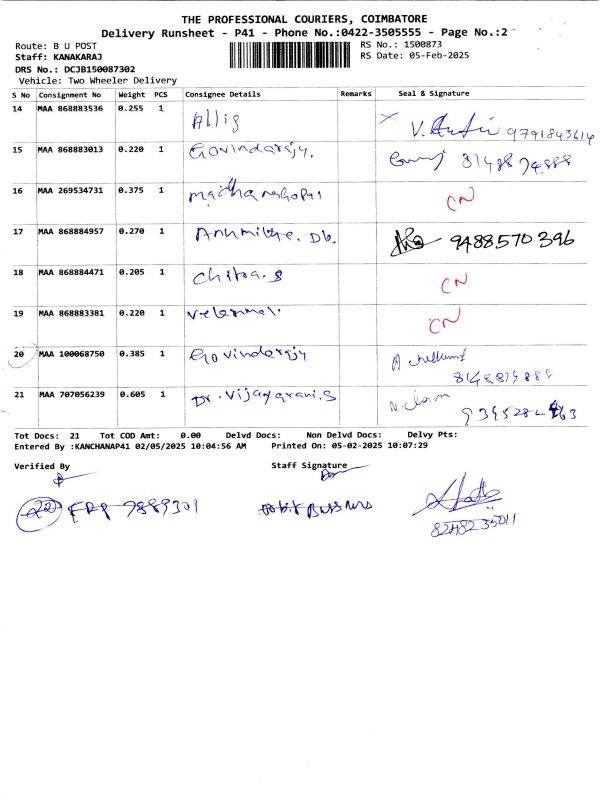 THE PROFESSIONAL COURIERS, COIMBATORE
Delivery Runsheet - P41 - Phone No.:0422-3505555 - Page No.:2
Route: B U POST RS No.: 1500873
Staff: KANAKARAJ RS Date: 05-Feb-2025
DRS No.: DCJB150087302
Vehicle: Two Wheeler Delivery
S No Consignment No Weight PCS Consignee Details Remarks Seal & Signature
14 MAA 868883536 0.255 1 9791843614
15 MAA 868883013 0.220 1 Govindarajy. 8148874888
16 MAA 269534731 0.375 1 CN
17 MAA 868884957 0.270 1 9488570396
18 MAA 868884471 0.205 1 Chitra.S CN
19 MAA 868883381 0.220 1 CN
20 MAA 100068750 0.385 1 Govindarajy
21 MAA 707056239 0.605 1 Dr. Vijayarani.S
Tot Docs: 21 Tot COD Amt: 0.00 Delvd Docs: Non Delvd Docs: Delvy Pts:
Entered By :KANCHANAP41 02/05/2025 10:04:56 AM Printed On: 05-02-2025 10:07:29
Verified By Staff Signature
22 7889301